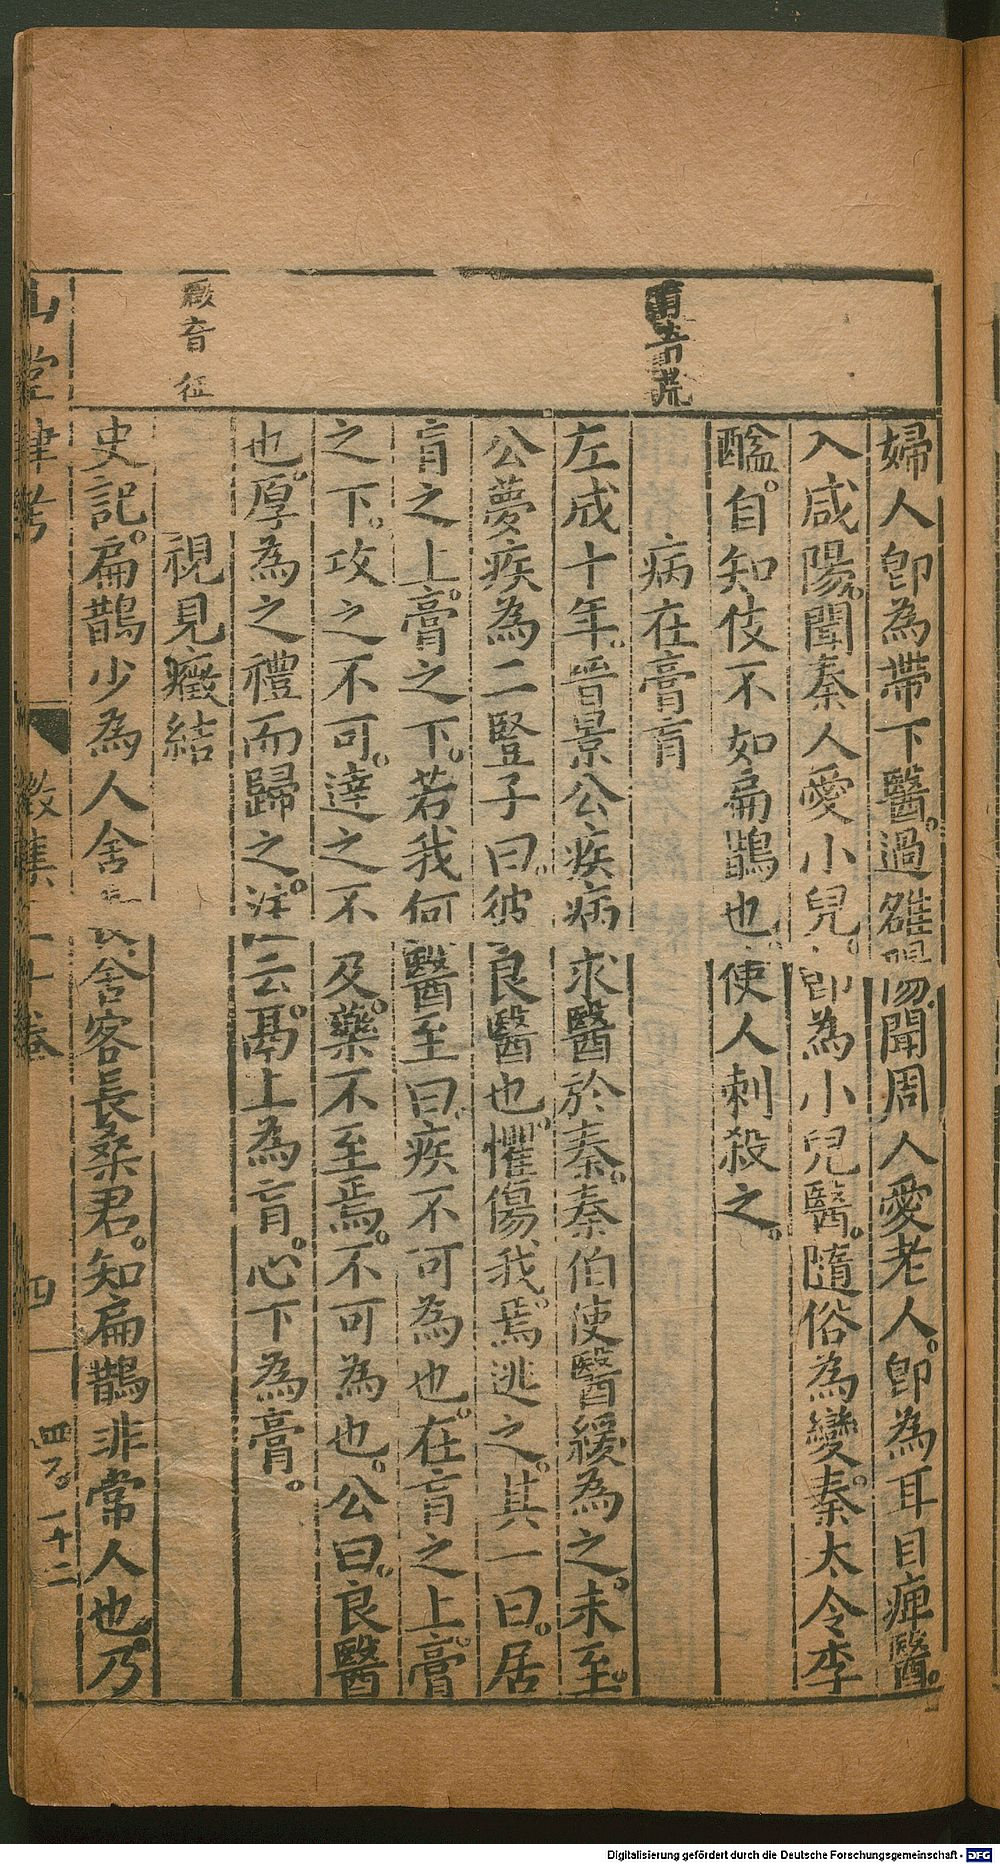 肓音荒
癥音征
婦人卽為帶下醫。過雒陽。聞周人愛老人。卽為耳目痺醫。
入咸陽。聞秦人愛小兒。卽為小兒醫。隨俗為變。秦太令李
醯。自知伎不如扁鵲也。使人刺殺之。
病在膏肓
左成十年。晉景公疾病求醫於秦。秦伯使醫緩為之。未至。
公夢疾為二豎子曰。彼良醫也。懼傷我。焉逃之。其一曰。居
肓之上。膏之下。若我何醫至曰。疾不可為也。在肓之上。膏
之下。攻之不可。達之不及。藥不至焉。不可為也。公曰。良醫
也。厚為之禮而歸之。註云。鬲上為肓。心下為膏。
視見癥結
史記。扁鵲少為人舍長舍客長桑君。知扁鵲非常人也。乃
山堂肆考
徵集二十卷
四
四ス。一十二
Digitalisierung gefördert durch die Deutsche Forschungsgemeinschaft - DFG